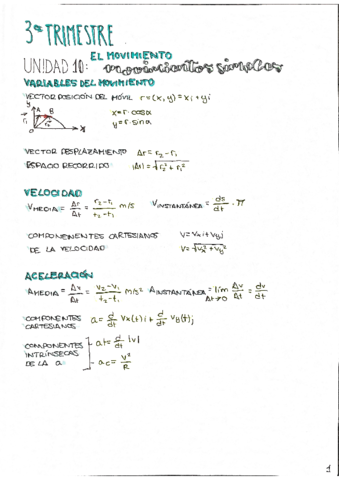 3er TRIMESTRE
EL MOVIMIENTO
UNIDAD 10: movimientos simples
VARIABLES DEL MOVIMIENTO
VECTOR POSICIÓN DEL MÓVIL r=(x,y)=xi+yj
y A B
r₁ x
x=r·cosα
y=r·sinα
VECTOR DESPLAZAMIENTO Δr=r₂-r₁
ESPACIO RECORRIDO |Δr|=√r₂²+r₁²
VELOCIDAD
VMEDIA= Δr/Δt = r₂-r₁/t₂-t₁ m/s VINSTANTÁNEA= ds/dt · π
COMPONENTES CARTESIANOS V=Vxi+Vyj
DE LA VELOCIDAD V=√Vx²+Vy²
ACELERACIÓN
AMEDIA= Δv/Δt = V₂-V₁/t₂-t₁ m/s² AINSTANTÁNEA= lím Δt→0 Δv/Δt = dv/dt
COMPONENTES CARTESIANOS a= d/dt Vx(t)i + d/dt Vy(t)j
COMPONENTES INTRÍNSECAS DE LA a:
at= d/dt |v|
ac= V²/R
1